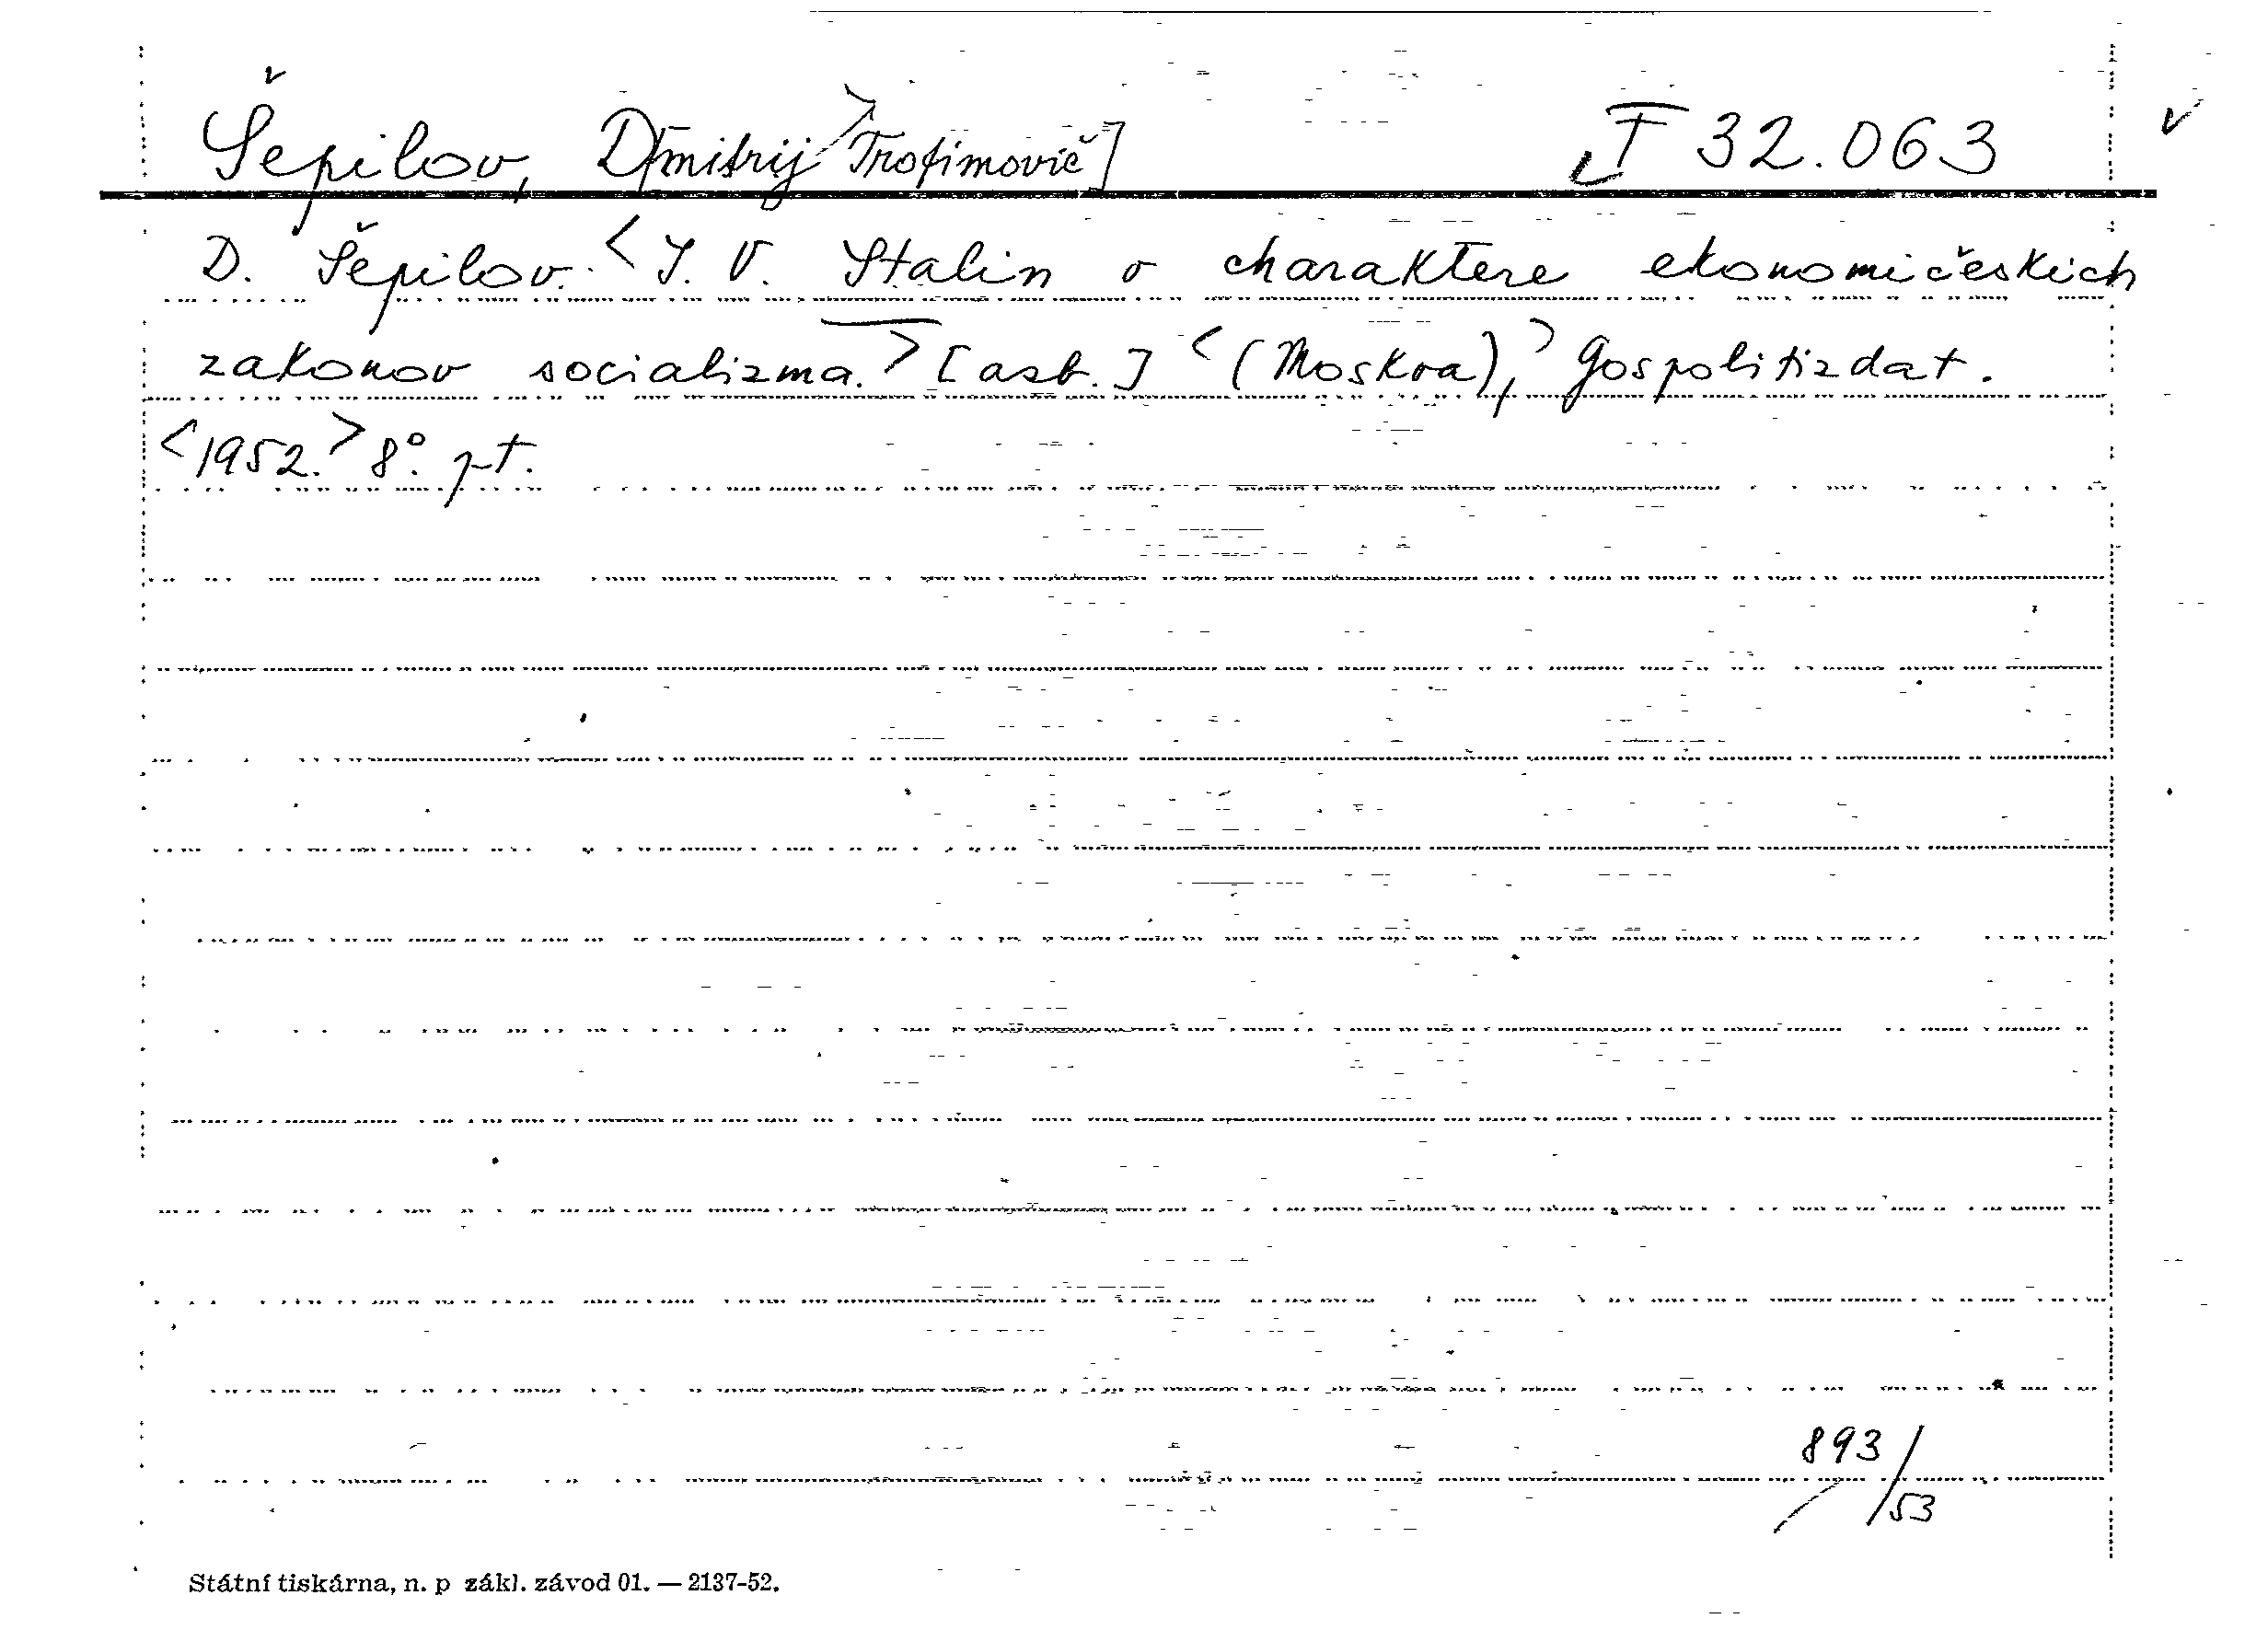 Šepilov, D[mitrij Trofimovič] I 32.063
D. Šepilov. <I. V. Stalin o charaktere ekonomičeskich
zakonov socializma.> [azb.] <(Moskva),> Gospolitizdat.
<1952.> 8°. pt.
893/53
Státní tiskárna, n. p zákl. závod 01. — 2137-52.